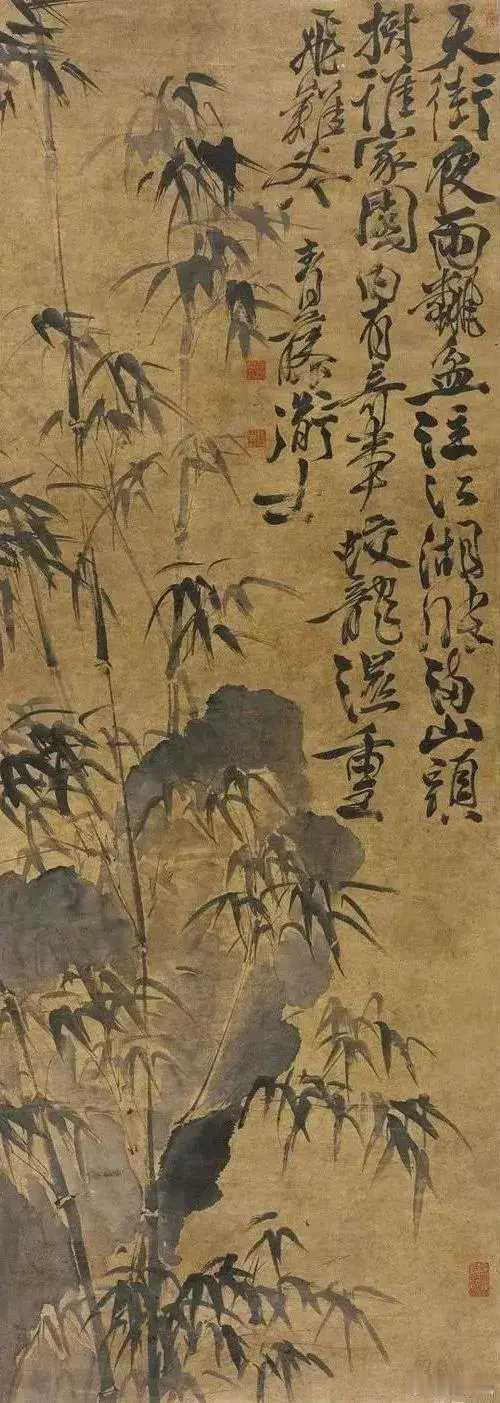 天街夜雨翻盆注江湖漲滿山頭
樹誰家園內有奇事蛟龍濕重
飛難去 青藤道士